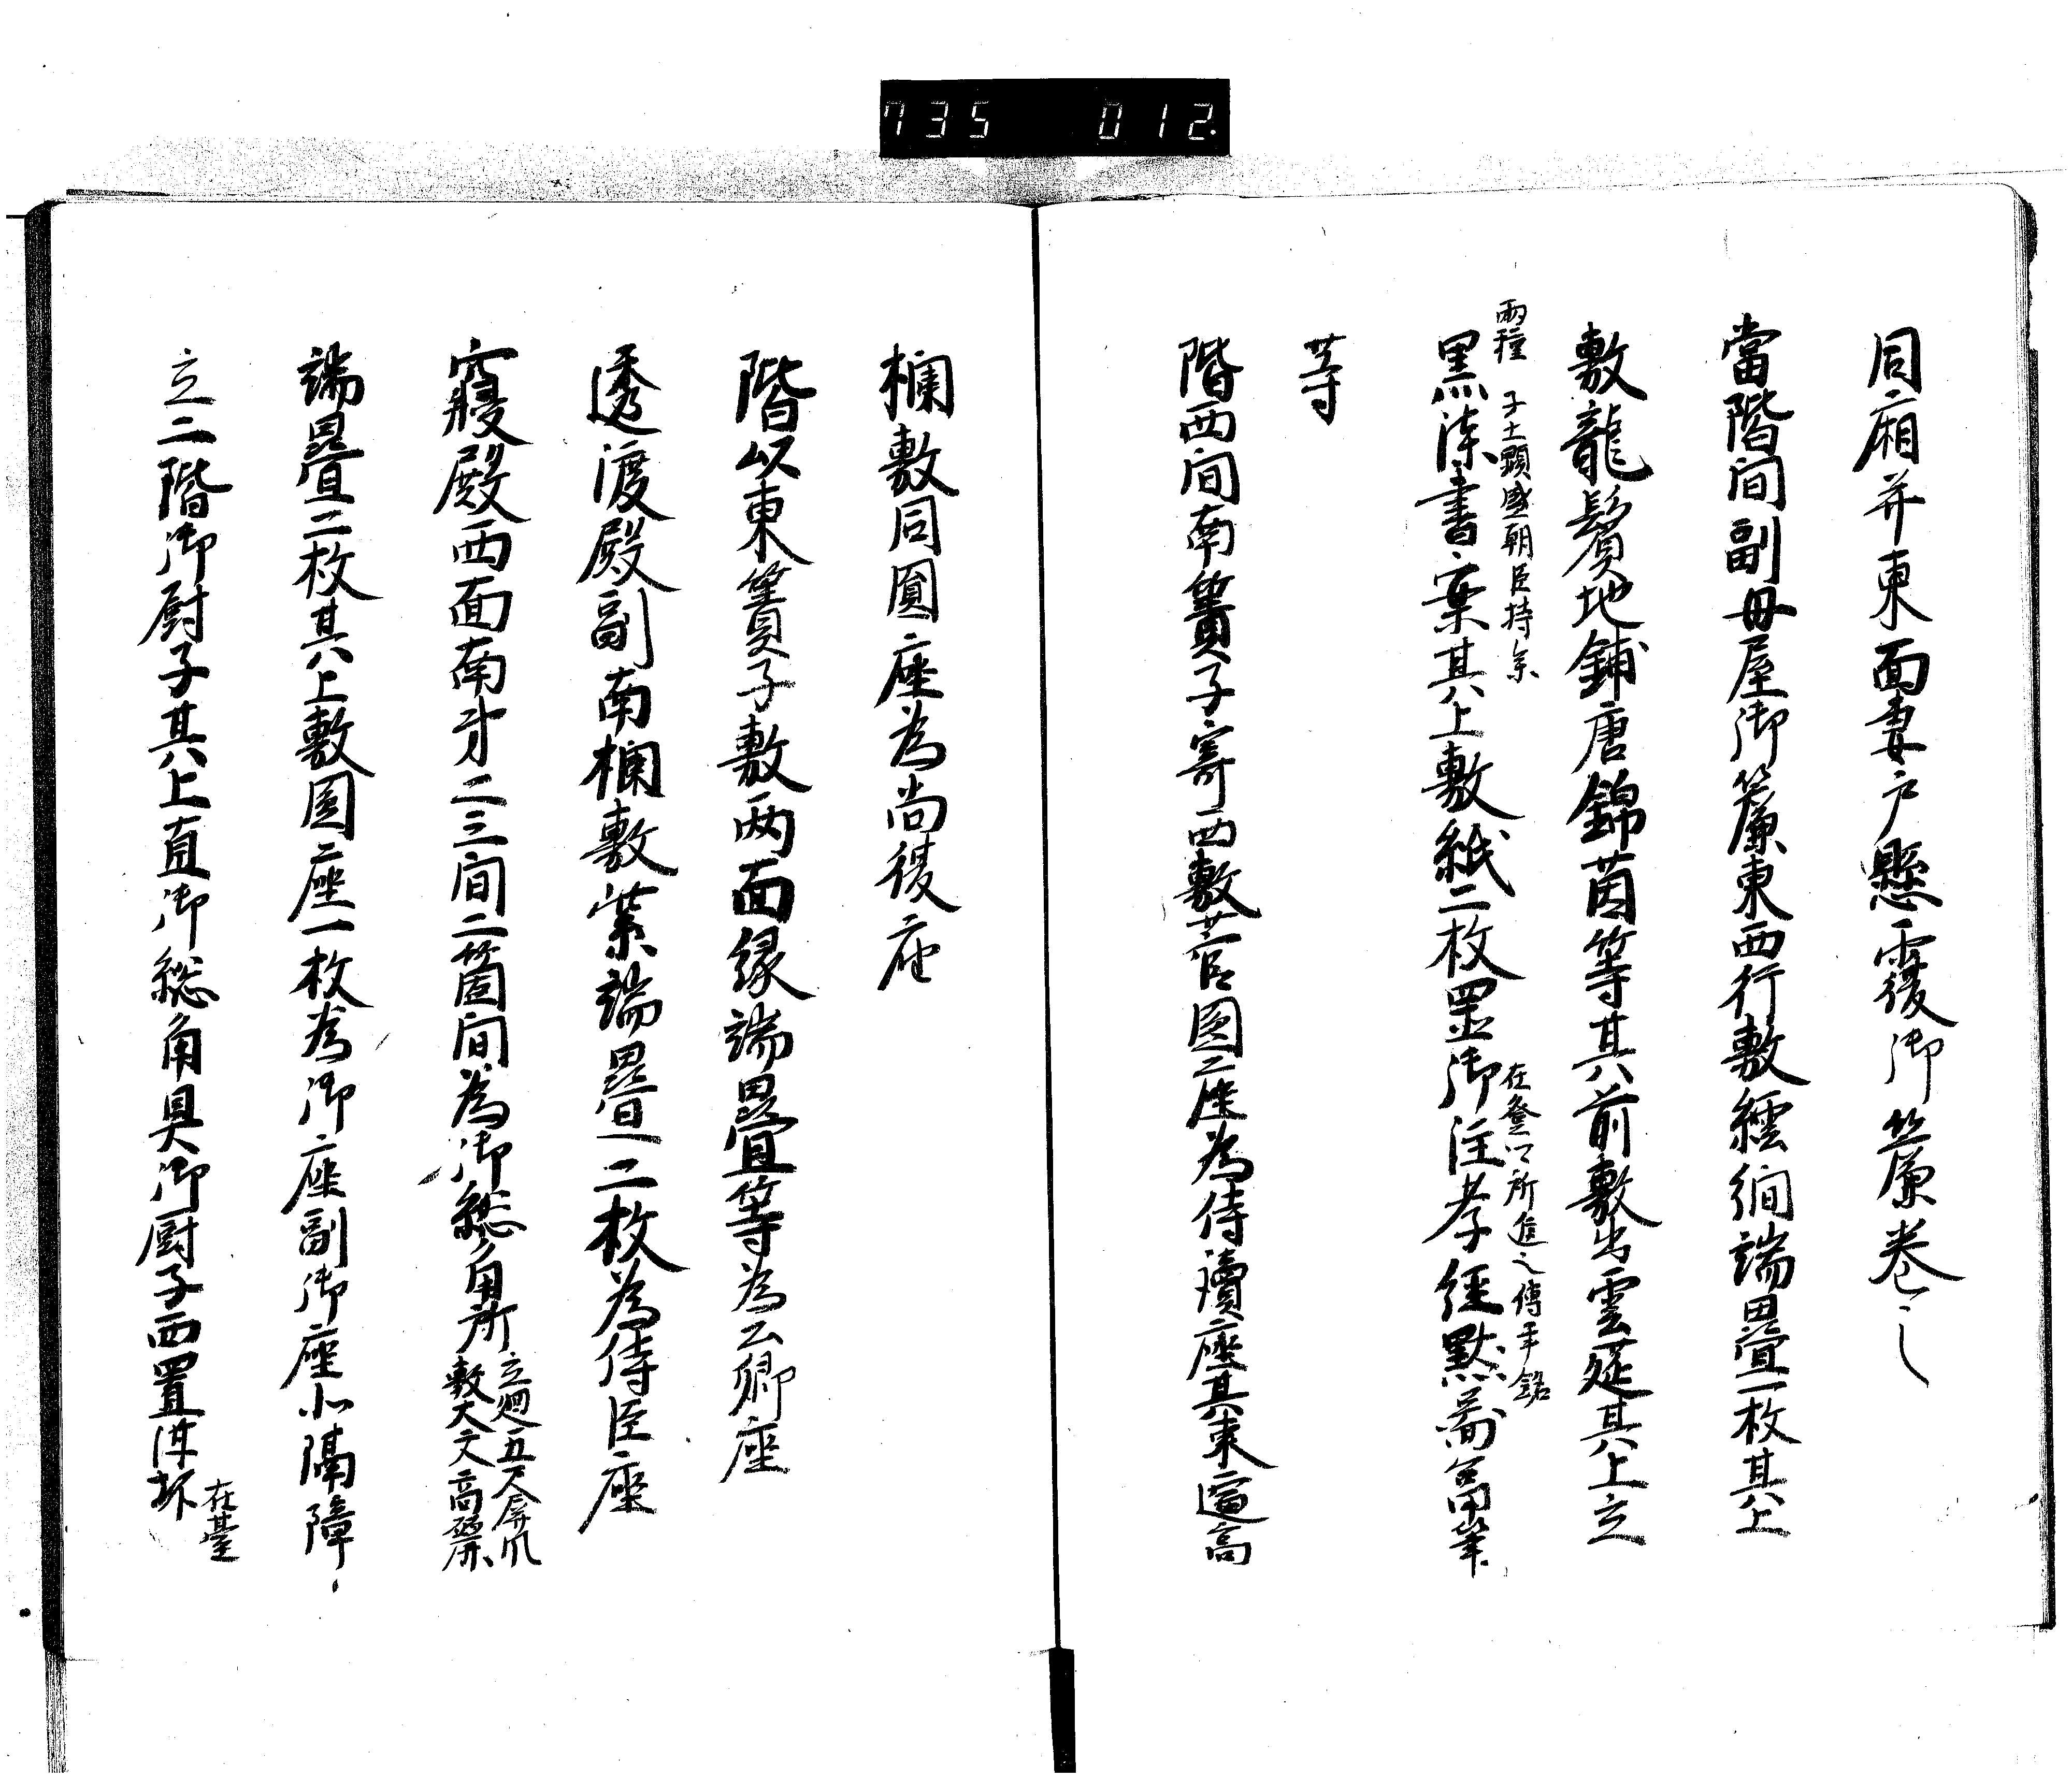 735 012
同廂并東面妻戸懸覆御簾巻之
當階間副母屋御簾東西行敷繧繝端疊一枚其上
敷龍鬢地鋪唐錦茵等其前敷出雲莚其上立
兩種 子土顕盛朝臣持条
黒漆書案其上敷紙二枚置御注孝經點畵角筆
在登 所進之傳手銘
等
階西間南簀子寄西敷菅圓座為侍讀座其東邊高
欄敷同圓座為尚復座
階以東簀子敷兩面縁端疊等為公卿座
透渡殿副南欄敷紫端疊二枚為侍臣座
寝殿西面南才二三間二箇間為御総角所 立廻五尺屏風
敷大文高麗
端疊二枚其上敷圓座一枚為御座副御座北隔障
立二階御厨子其上置御総角具御厨子西置泔坏 在臺